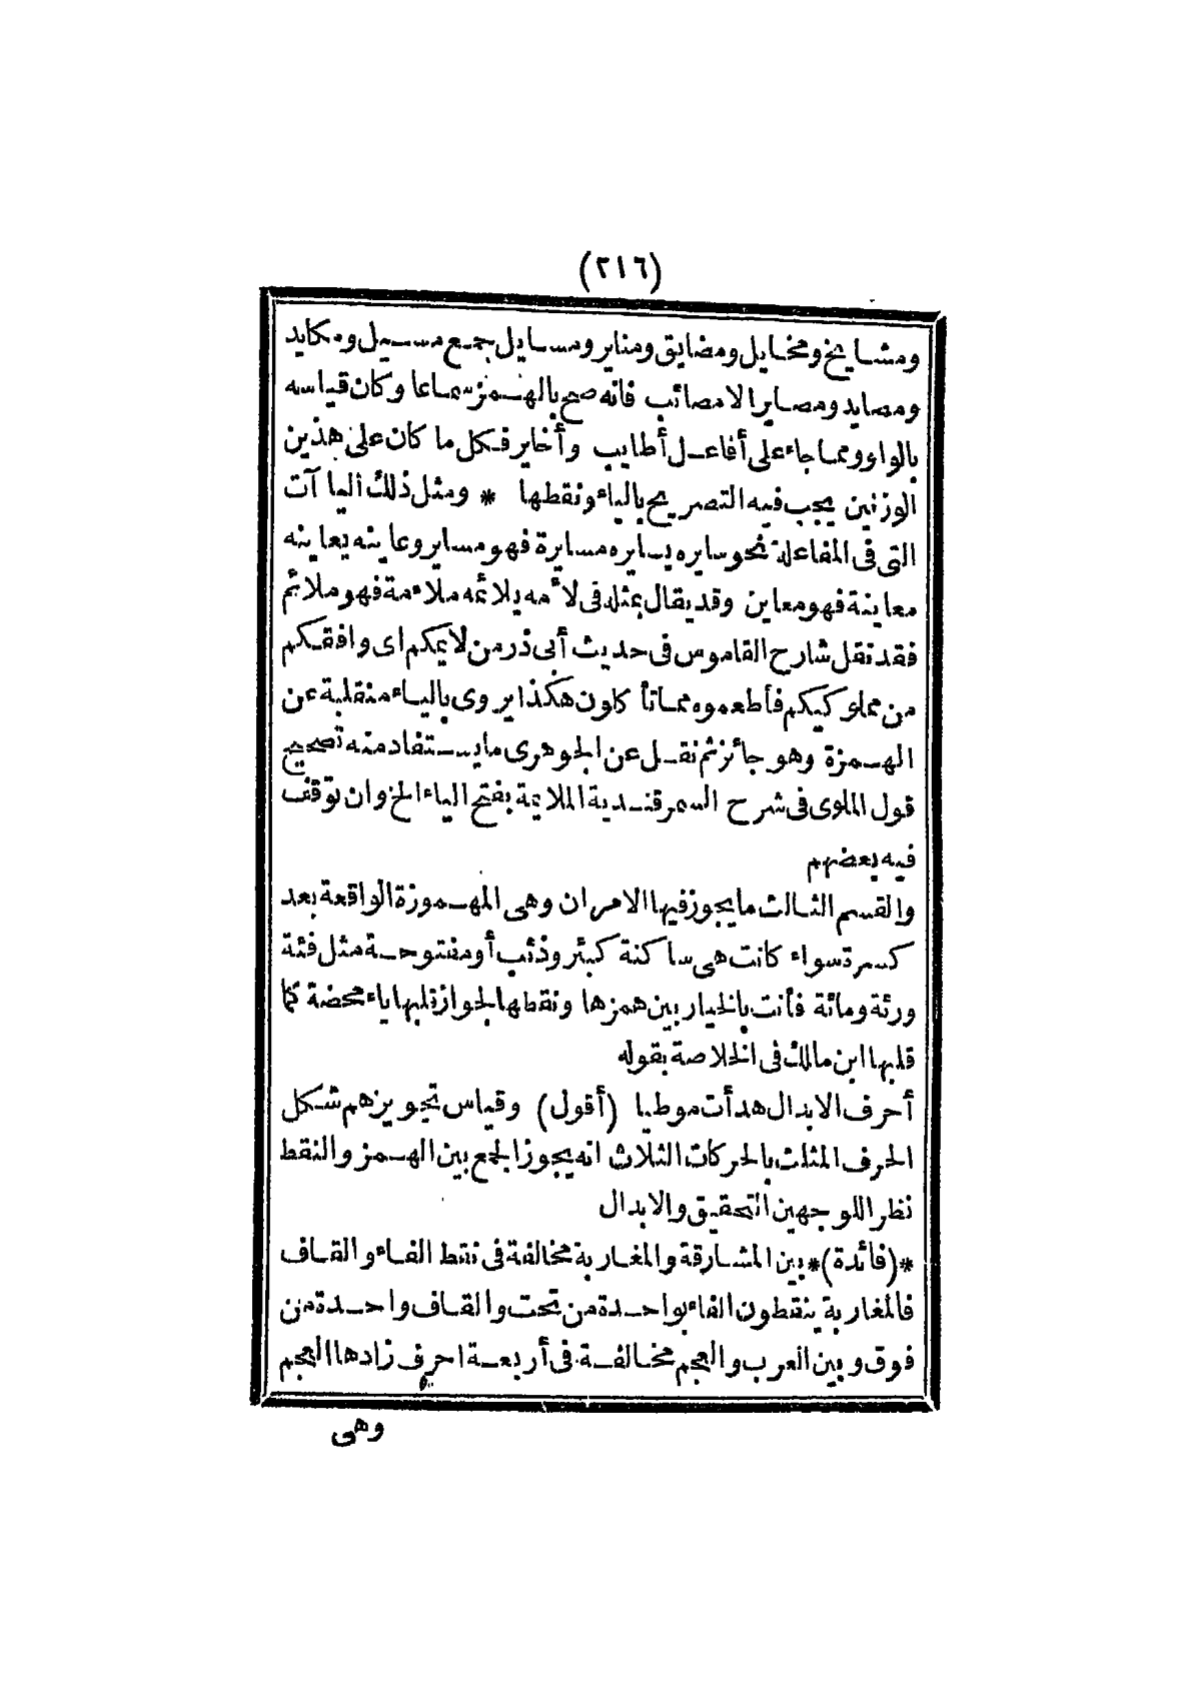 (٢١٦)
ومشايخ ومخايل ومضايق ومناير ومسايل جمع مسيل ومكايد
ومصايد ومصاير الامصائب فانه صح بالهمز سماعا وكان قياسه
بالواو ومما جاء على أفاعل أطايب وأخاير فكل ما كان على هذين
الوزنين يجب فيه التصريح بالياء ونقطها * ومثل ذلك اليا آت
التى فى المفاعلة نحو سايره يسايره مسايرة فهو مساير وعاينه يعاينه
معاينة فهو معاين وقد يقال بمثله فى لأمه يلائمه ملاءمة فهو ملائم
فقد نقل شارح القاموس فى حديث أبى ذر من لايمكم اى وافقكم
من مملوكيكم فأطعموه مما تأكلون هكذا يروى بالياء منقلبة عن
الهمزة وهو جائز ثم نقل عن الجوهرى ما يستفاد منه تصحيح
قول الملوى فى شرح السمرقندية الملايمة بفتح الياء الخ وان توقف
فيه بعضهم
والقسم الثالث ما يجوز فيها الامران وهى المهموزة الواقعة بعد
كسرة سواء كانت هى ساكنة كبئر وذئب أو مفتوحة مثل فئة
ورئة ومائة فأنت بالخيار بين همزها ونقطها لجواز قلبها ياء محضة كما
قلبها ابن مالك فى الخلاصة بقوله
أحرف الابدال هدأت موطيا (أقول) وقياس تجويزهم شكل
الحرف المثلث بالحركات الثلاث انه يجوز الجمع بين الهمز والنقط
نظرا للوجهين التحقيق والابدال
*(فائدة)* بين المشارقة والمغاربة مخالفة فى نقط الفاء والقاف
فالمغاربة ينقطون الفاء بواحدة من تحت والقاف واحدة من
فوق وبين العرب والعجم مخالفة فى أربعة احرف زادها العجم
وهى